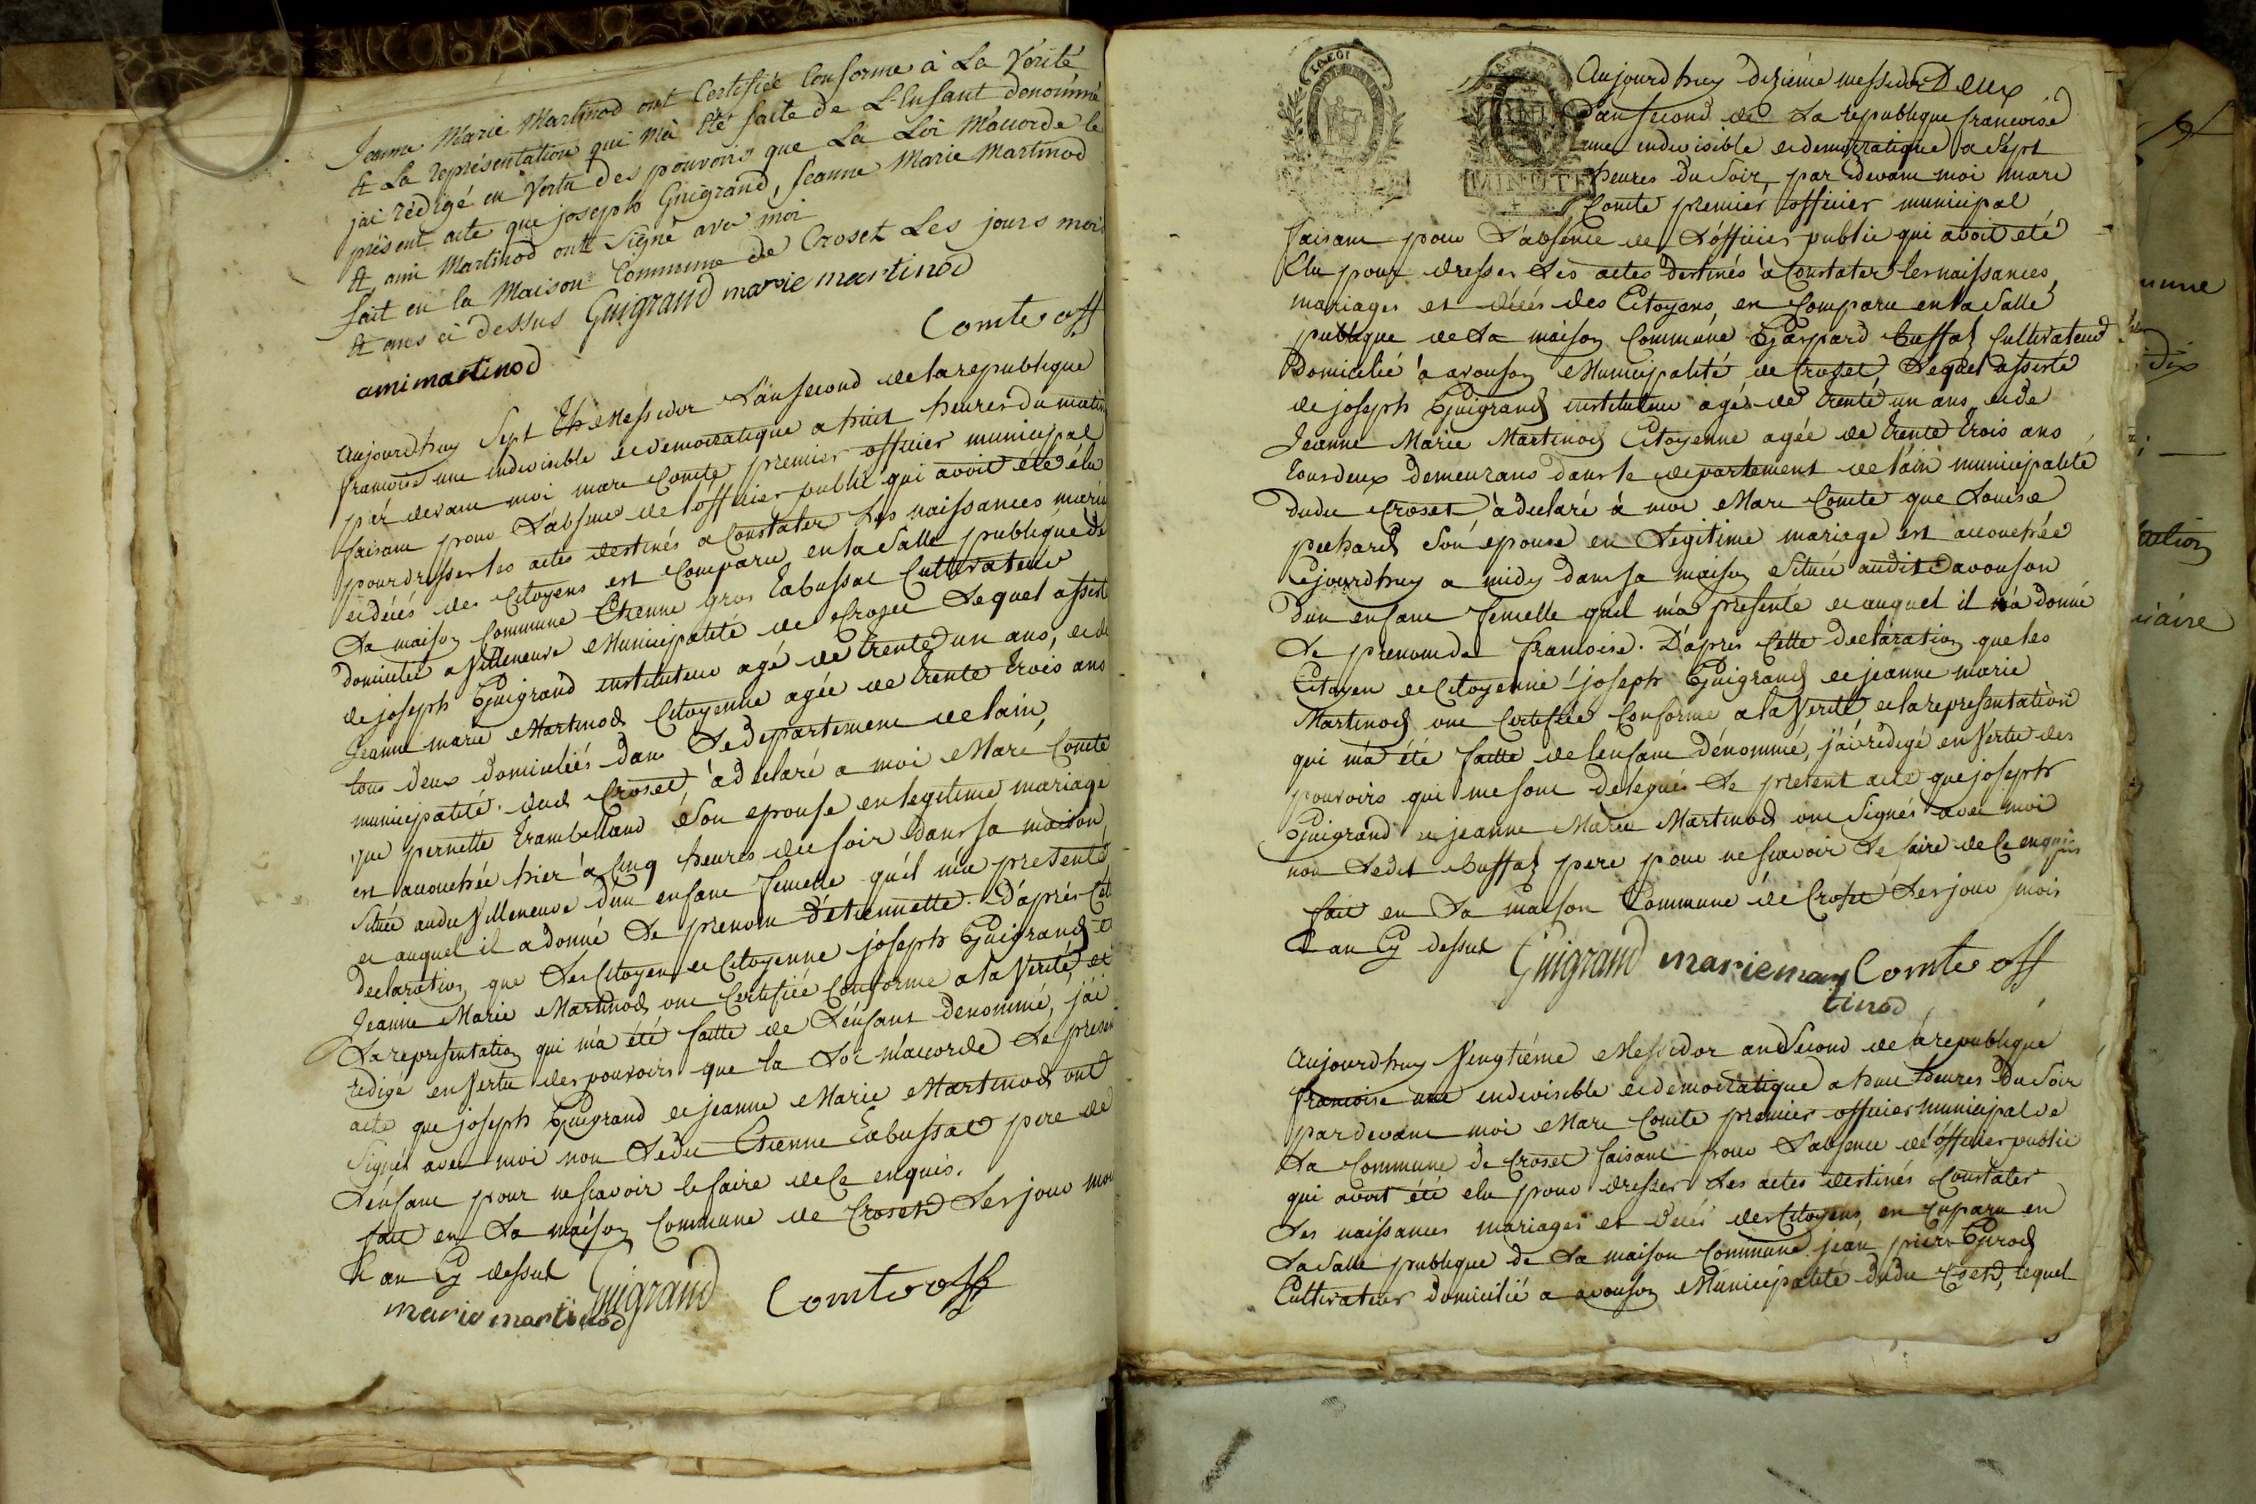 Jeanne Marie Martinod ont Certifiée Conforme à La Vérité
& La représentation qui m'à été faite de L'Enfant dénommé
jai rédigé en Vertu des pouvoirs que La Loi m'accorde le
présent acte que joseph Guigrand, Jeanne Marie Martinod
& ami Martinod ontt Signé avec moi
fait en la Maison Commune de Croset Les jours mois
& ans ci dessus Guigrand marie martinod
Comte off
ami martinod
aujourdhuy Sept Messidor L'an second de la republique
francoise une indivisible et democratique a huit heures du matin
par devant moi marc Comte premier officier municipal
faisant pour L'absence de l'officier public qui avoit été élu
pour dresser les actes destinés a Constater Les naissances maria
et décés des Citoyens est Comparu en la Salle publique de
La maison Commune Etienne gros Labussat Cultivateur
domicilié a Villeneuve Municipalité de Croset Lequel assist
de joseph Guigrand instituteur agé de trente un ans, et de
Jeanne marie Martinod Citoyenne agée de trente trois ans
tous deux domiciliés dans Le departement de lain,
municipalité dud Croset, a declaré a moi Marc Comte
que pernette Trambelland Son epouse en legitime mariage
est accouchée hier a Cinq heures du soir dans sa maison
Située audit Villeneuve d'un enfant femelle qu'il m'a presenté
et auquel il a donné Le prenom d'etiennette. D'aprés Cet
declaration que Les Citoyen et Citoyenne joseph Guigrand e
Jeanne Marie Martinod ont Certifiée Conforme a la Verité, et
La representation qui m'a été faitte de L'enfant denommé, j'ai
redigé en Vertu des pouvoirs que la Loi m'accorde Le presen
acte que joseph Guigrand et jeanne Marie Martinod ont
Signés avec moi non Ledit Etienne Labussat pere de
L'enfant pour ne scavoir le faire de Ce enquis.
fait en La maison Commune de Croset Les jour moi
& an Cy dessus
marie martinod Guigrand Comte off
Aujourdhuy dixième messidor Deux
L'an second de La republique francoise
une indivisible et democratique a Sept
heures du Soir, par devant moi marc
Comte premier officier municipal
faisant pour L'absence de L'officier public qui avoit été
Elu pour dresser Les actes destinés a Constater les naissances,
mariages et décés des Citoyens, est Comparu en la Salle
publique de La maison Commune Gaspard Buffat Cultivateur
Domicilié a avouson Municipalité de Croset, Lequel assisté
de joseph Guigrand instituteur agé de trente un ans, et de
Jeanne Marie Martinod Citoyenne agée de trente trois ans
tous deux demeurans dans le departement de l'ain municipalité
dudit Croset a declaré à moi Marc Comte que Louise
pechard Son epouse en Legitime mariage est accouchée
Cejourdhuy a midy dans sa maison Située audit avouson
d'un enfant femelle quil m'a presenté et auquel il a donné
Le prenom de francoise. D'apres Cette declaration que les
Citoyen et Citoyenne joseph Guigrand et jeanne marie
Martinod ont Certifiée Conforme a la Verité et la representation
qui m'a été faitte de lenfant dénommé, j'ai redigé en Vertu des
pouvoirs qui me sont delegués Le present acte que joseph
Guigrand et jeanne Marie Martinod ont Signés avec moi
non Ledit Buffat pere pour ne scavoir Le faire de Ce enquis
fait en La maison Commune de Croset Les jour mois
& an Cy dessus Guigrand marie mar Comte off
tinod
Aujourdhuy Vingtiéme Messidor an Second de la republique
francoise une indivisible et democratique a huit heures du Soir
par devant moi Marc Comte premier officier municipal de
La Commune de Croset faisant pour L'absence de l'officier public
qui avoit été elu pour dresser Les actes destinés a Constater
Les naissances mariages et décés des Citoyens, est Cuparu en
La Salle publique de La maison Commune jean pierre Girod
Cultivateur domicilié a avouson Municipalité dudit Croset, lequel
MINUTE